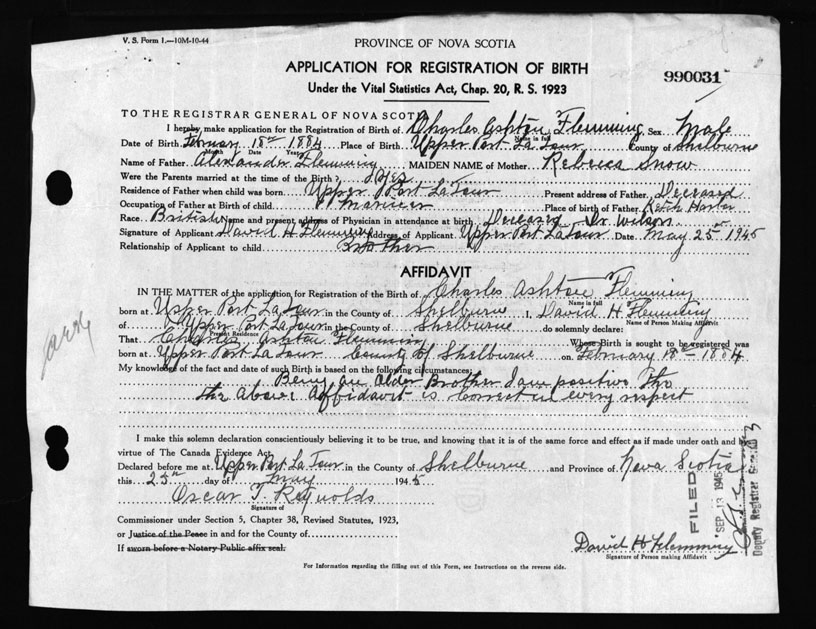 V. S. Form 1.—10M-10-44
PROVINCE OF NOVA SCOTIA
APPLICATION FOR REGISTRATION OF BIRTH
990031
Under the Vital Statistics Act, Chap. 20, R. S. 1923
TO THE REGISTRAR GENERAL OF NOVA SCOTIA
I hereby make application for the Registration of Birth of Charles Ashton Flemming Sex Male
Name in full
Date of Birth February 18th 1884 Place of Birth Upper Port La Tour County of Shelburne
Month Date Year
Name of Father Alexander Flemming MAIDEN NAME of Mother Rebecca Snow
Were the Parents married at the time of the Birth? Yes
Residence of Father when child was born Upper Port La Tour Present address of Father Deceased
Occupation of Father at Birth of child Mariner Place of birth of Father Ketch Harbor
Race British Name and present address of Physician in attendance at birth Deceased Dr Wilson
Signature of Applicant David H Flemming Address of Applicant Upper Port La Tour Date May 25th 1945
Relationship of Applicant to child Brother
AFFIDAVIT
IN THE MATTER of the application for Registration of the Birth of Charles Ashton Flemming
Name in full
born at Upper Port La Tour in the County of Shelburne I, David H. Flemming
of Upper Port La Tour in the County of Shelburne do solemnly declare:
Present Residence Name of Person Making Affidavit
That Charles Ashton Flemming Whose Birth is sought to be registered was
born at Upper Port La Tour County of Shelburne on February 18th 1884
My knowledge of the fact and date of such Birth is based on the following circumstances:
Being an older Brother I am positive tho
the above affidavit is correct in every respect
I make this solemn declaration conscientiously believing it to be true, and knowing that it is of the same force and effect as if made under oath and by
virtue of The Canada Evidence Act.
Declared before me at Upper Port La Tour in the County of Shelburne and Province of Nova Scotia
this 25th day of May 1945
Oscar T. Reynolds
Signature of
Commissioner under Section 5, Chapter 38, Revised Statutes, 1923,
or Justice of the Peace in and for the County of
If sworn before a Notary Public affix seal.
David H Flemming
Signature of Person making Affidavit
For Information regarding the filling out of this Form, see Instructions on the reverse side.
FILED
SEP 13 1945
Deputy Registrar General